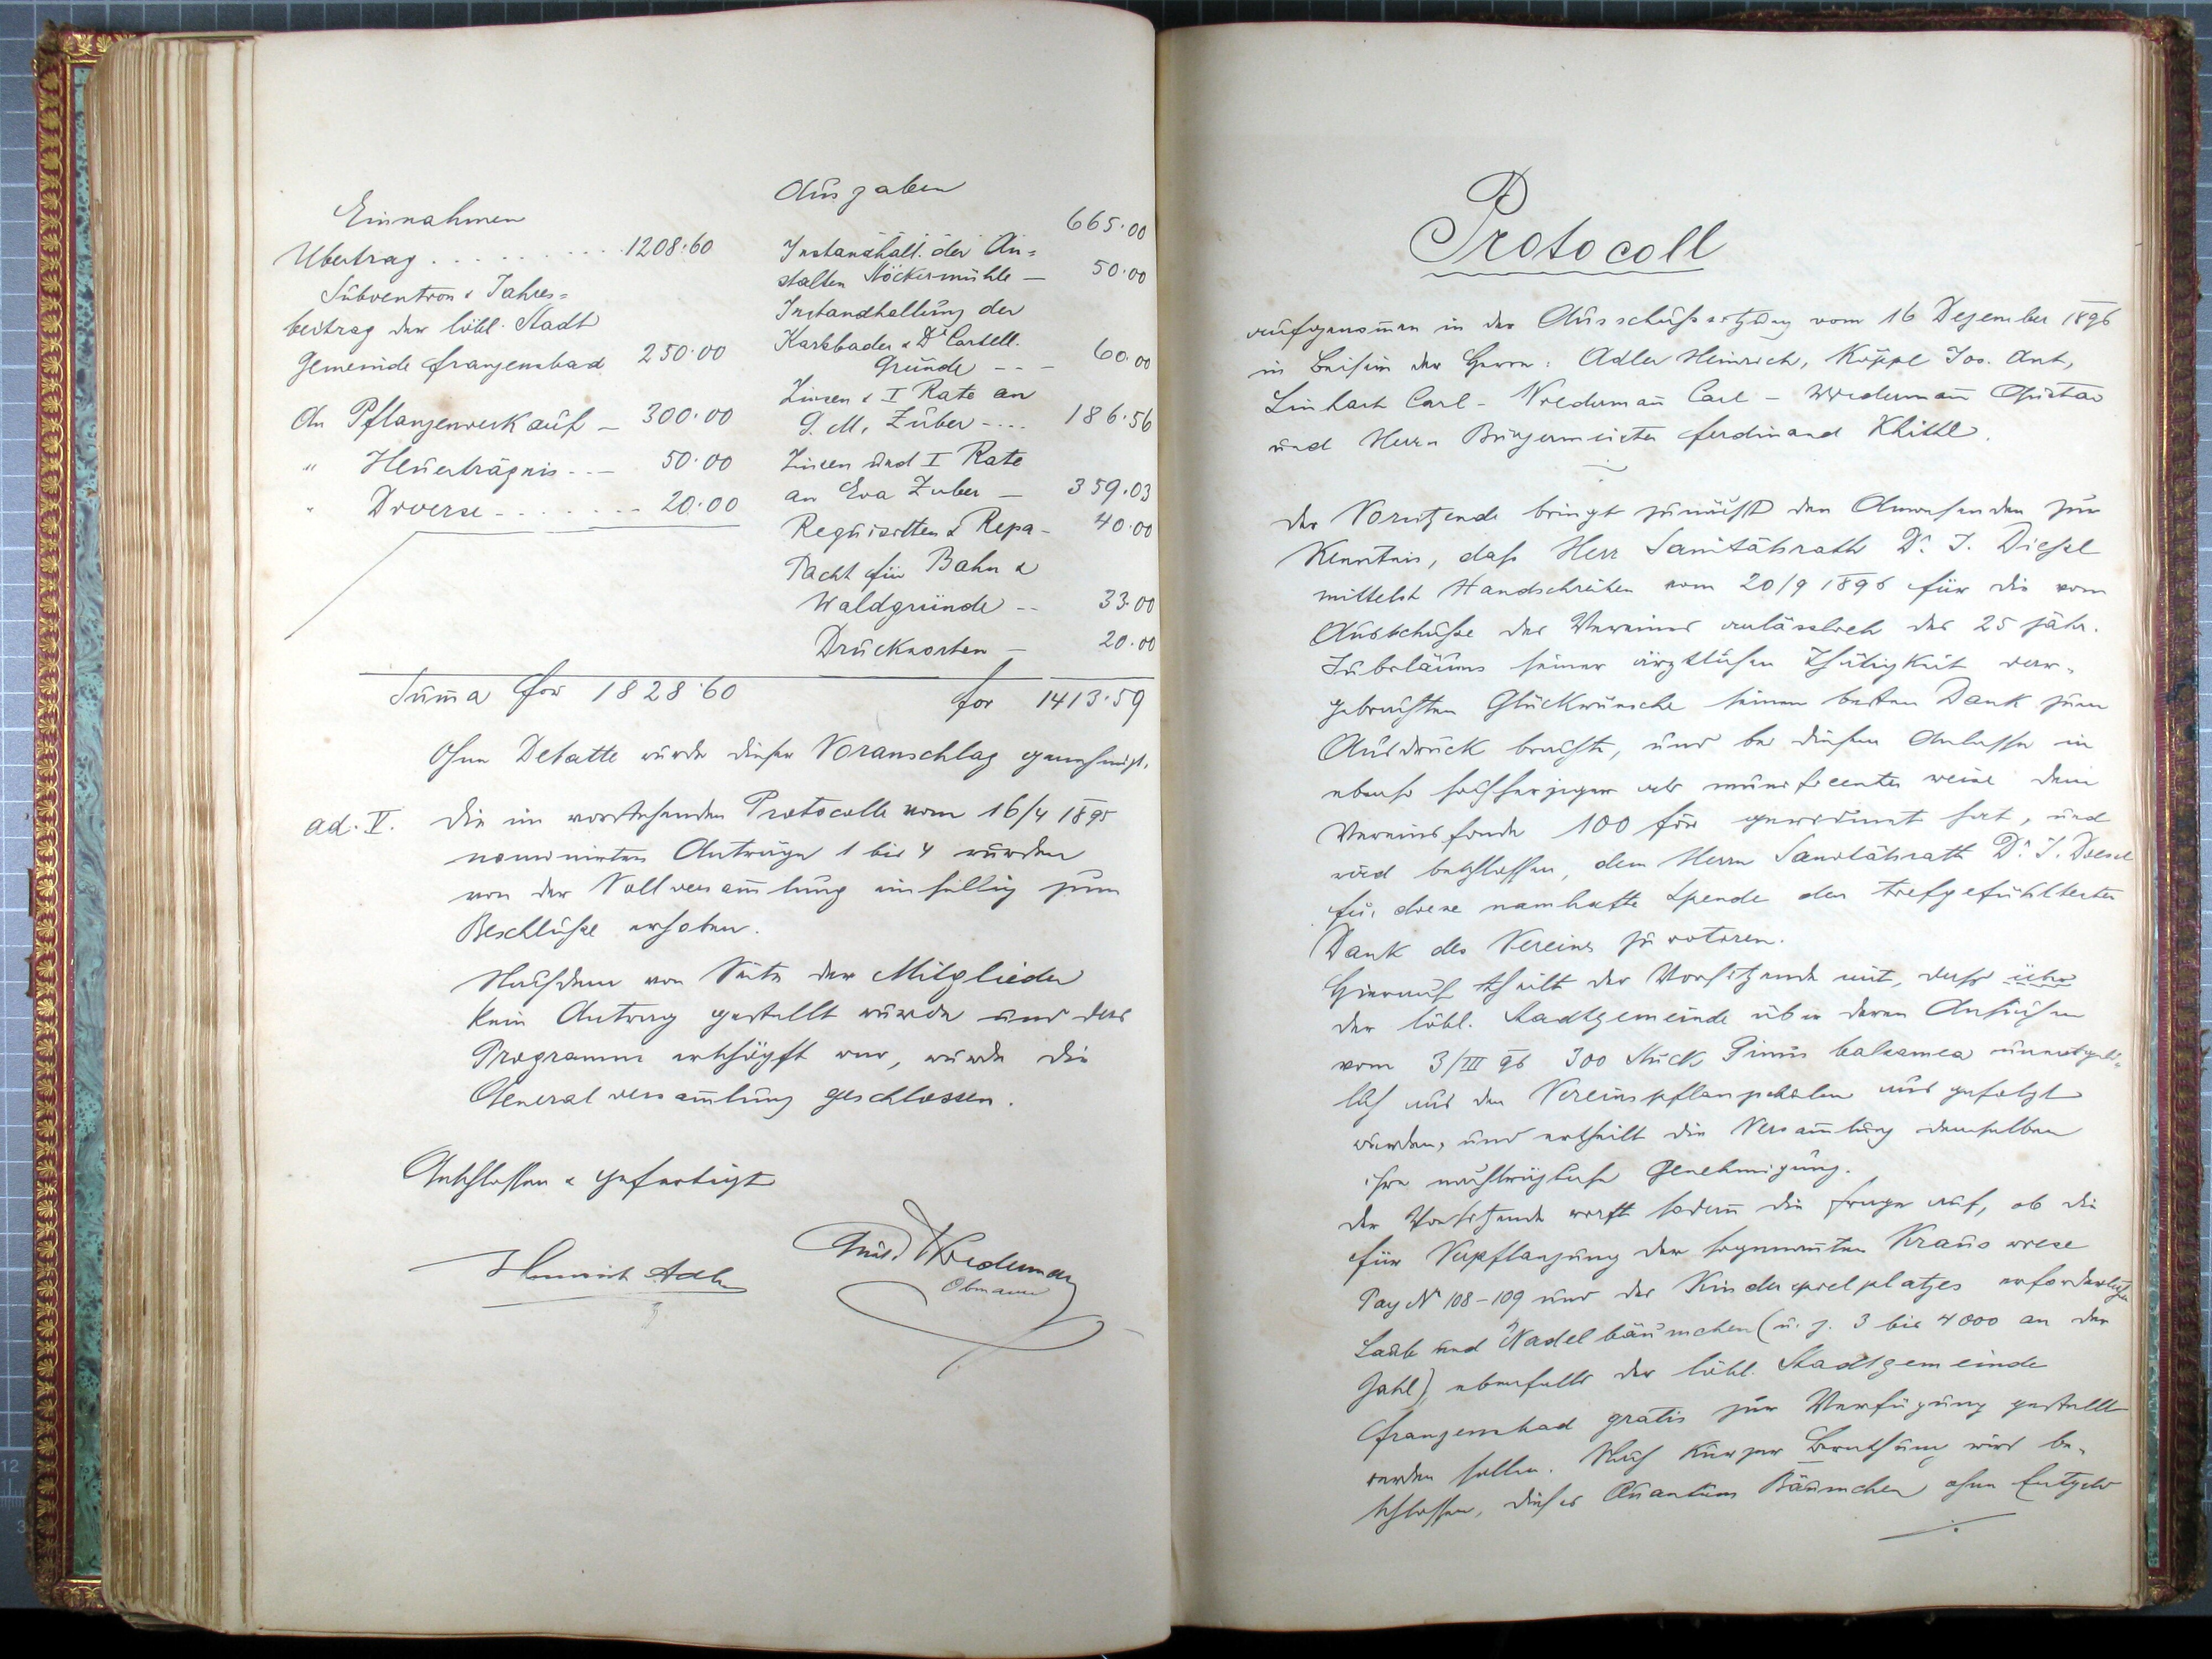 Einnahmen
Übertrag . . . . . . . . . 1208·60
Subvention & Jahres=
beitrag der löbl. Stadt
Gemeinde Franzensbad 250·00
An Pflanzenverkauf — 300·00
" Heuerträgnis - - — 50·00
" Diverse - - - - - - - 20·00
Ausgaben
665·00
Instandhalt. der An=
stalten Stöckermühle — 50·00
Instandhaltung der
Karlsbader & Dr Cartell.
Gründe - - — 60·00
Zinsen & I Rate an
G. M. Zuber - . . . 186·56
Zinsen und I Rate
an Eva Zuber — 359·03
Requisitten & Repa- 40·00
Pacht für Bahn &
Waldgründe - - 33·00
Drucksorten — 20·00
Summa for 1828·60
for 1413·59
Ohne Debatte wurde dieser Voranschlag genehmigt.
ad. V. Die im vorstehenden Protocolle vom 16/4 1895
nominirten Anträge 1 bis 4 wurden
von der Vollversam̄lung einhellig zum
Beschluße erhoben.
Nachdem von Seite der Mitglieder
kein Antrag gestellt wurde und das
Programm erschöpft war, wurde die
Generalversam̄lung geschlossen.
Geschlossen & gefertigt
Heinrich Adler
Gust. Wiedermann
Obmann
Protocoll
aufgenom̄en in der Ausschußsitzung vom 16 Dezember 1896
in Beisein der Herrn: Adler Heinrich, Köppl Jos. Ant,
Linhart Carl - Wiederman̄ Carl - Wiederman̄ Gustav
und Herrn Bürgermeister Ferdinand Khittl.
Der Vorsitzende bringt zunächst den Anwesenden zur
Kenntnis, daß Herr Sanitätsrath Dr. J. Diessl
mittelst Handschreiben vom 20/9 1896 für die vom
Ausschuße des Vereines anlässlich des 25 jähr.
Jubiläums seiner ärztlichen Thätigkeit dar-
gebrachten Glückwünsche seinen besten Dank zum
Ausdruck brachte, und bei diesem Anlasse in
ebenso hochherziger als munificenter weise dem
Vereinsfonde 100 for gewidmet hat, und
wird beschlossen, dem Herrn Sanitätsrath Dr. J. Diessl
für diese namhafte Spende den tiefgefühltesten
Dank des Vereines zu votiren.
Hierauf theilt der Vorsitzende mit, dass über
der löbl. Stadtgemeinde über deren Ansuchen
vom 3/III 96 300 Stück Pinus balsamea unentgelt-
lich aus den Vereinspflanzschulen ausgefolgt
wurden, und ertheilt die Versam̄lung demselben
ihre nachträgliche Genehmigung.
Der Vorsitzende wirft sodan̄ die Frage auf, ob die
für Verpflanzung der sogenan̄ten Krauswiese
Parz Nr 108-109 und des Kinderspielplatzes erforderlichen
Laub und Nadelbäumchen (u. z. 3 bis 4000 an der
Zahl) ebenfalls der löbl. Stadtgemeinde
Franzensbad gratis zur Verfügung gestellt
werden sollen. Nach kurzer Berathung wird be-
schlossen, dieses Quantum Bäumchen ohne Entgeld